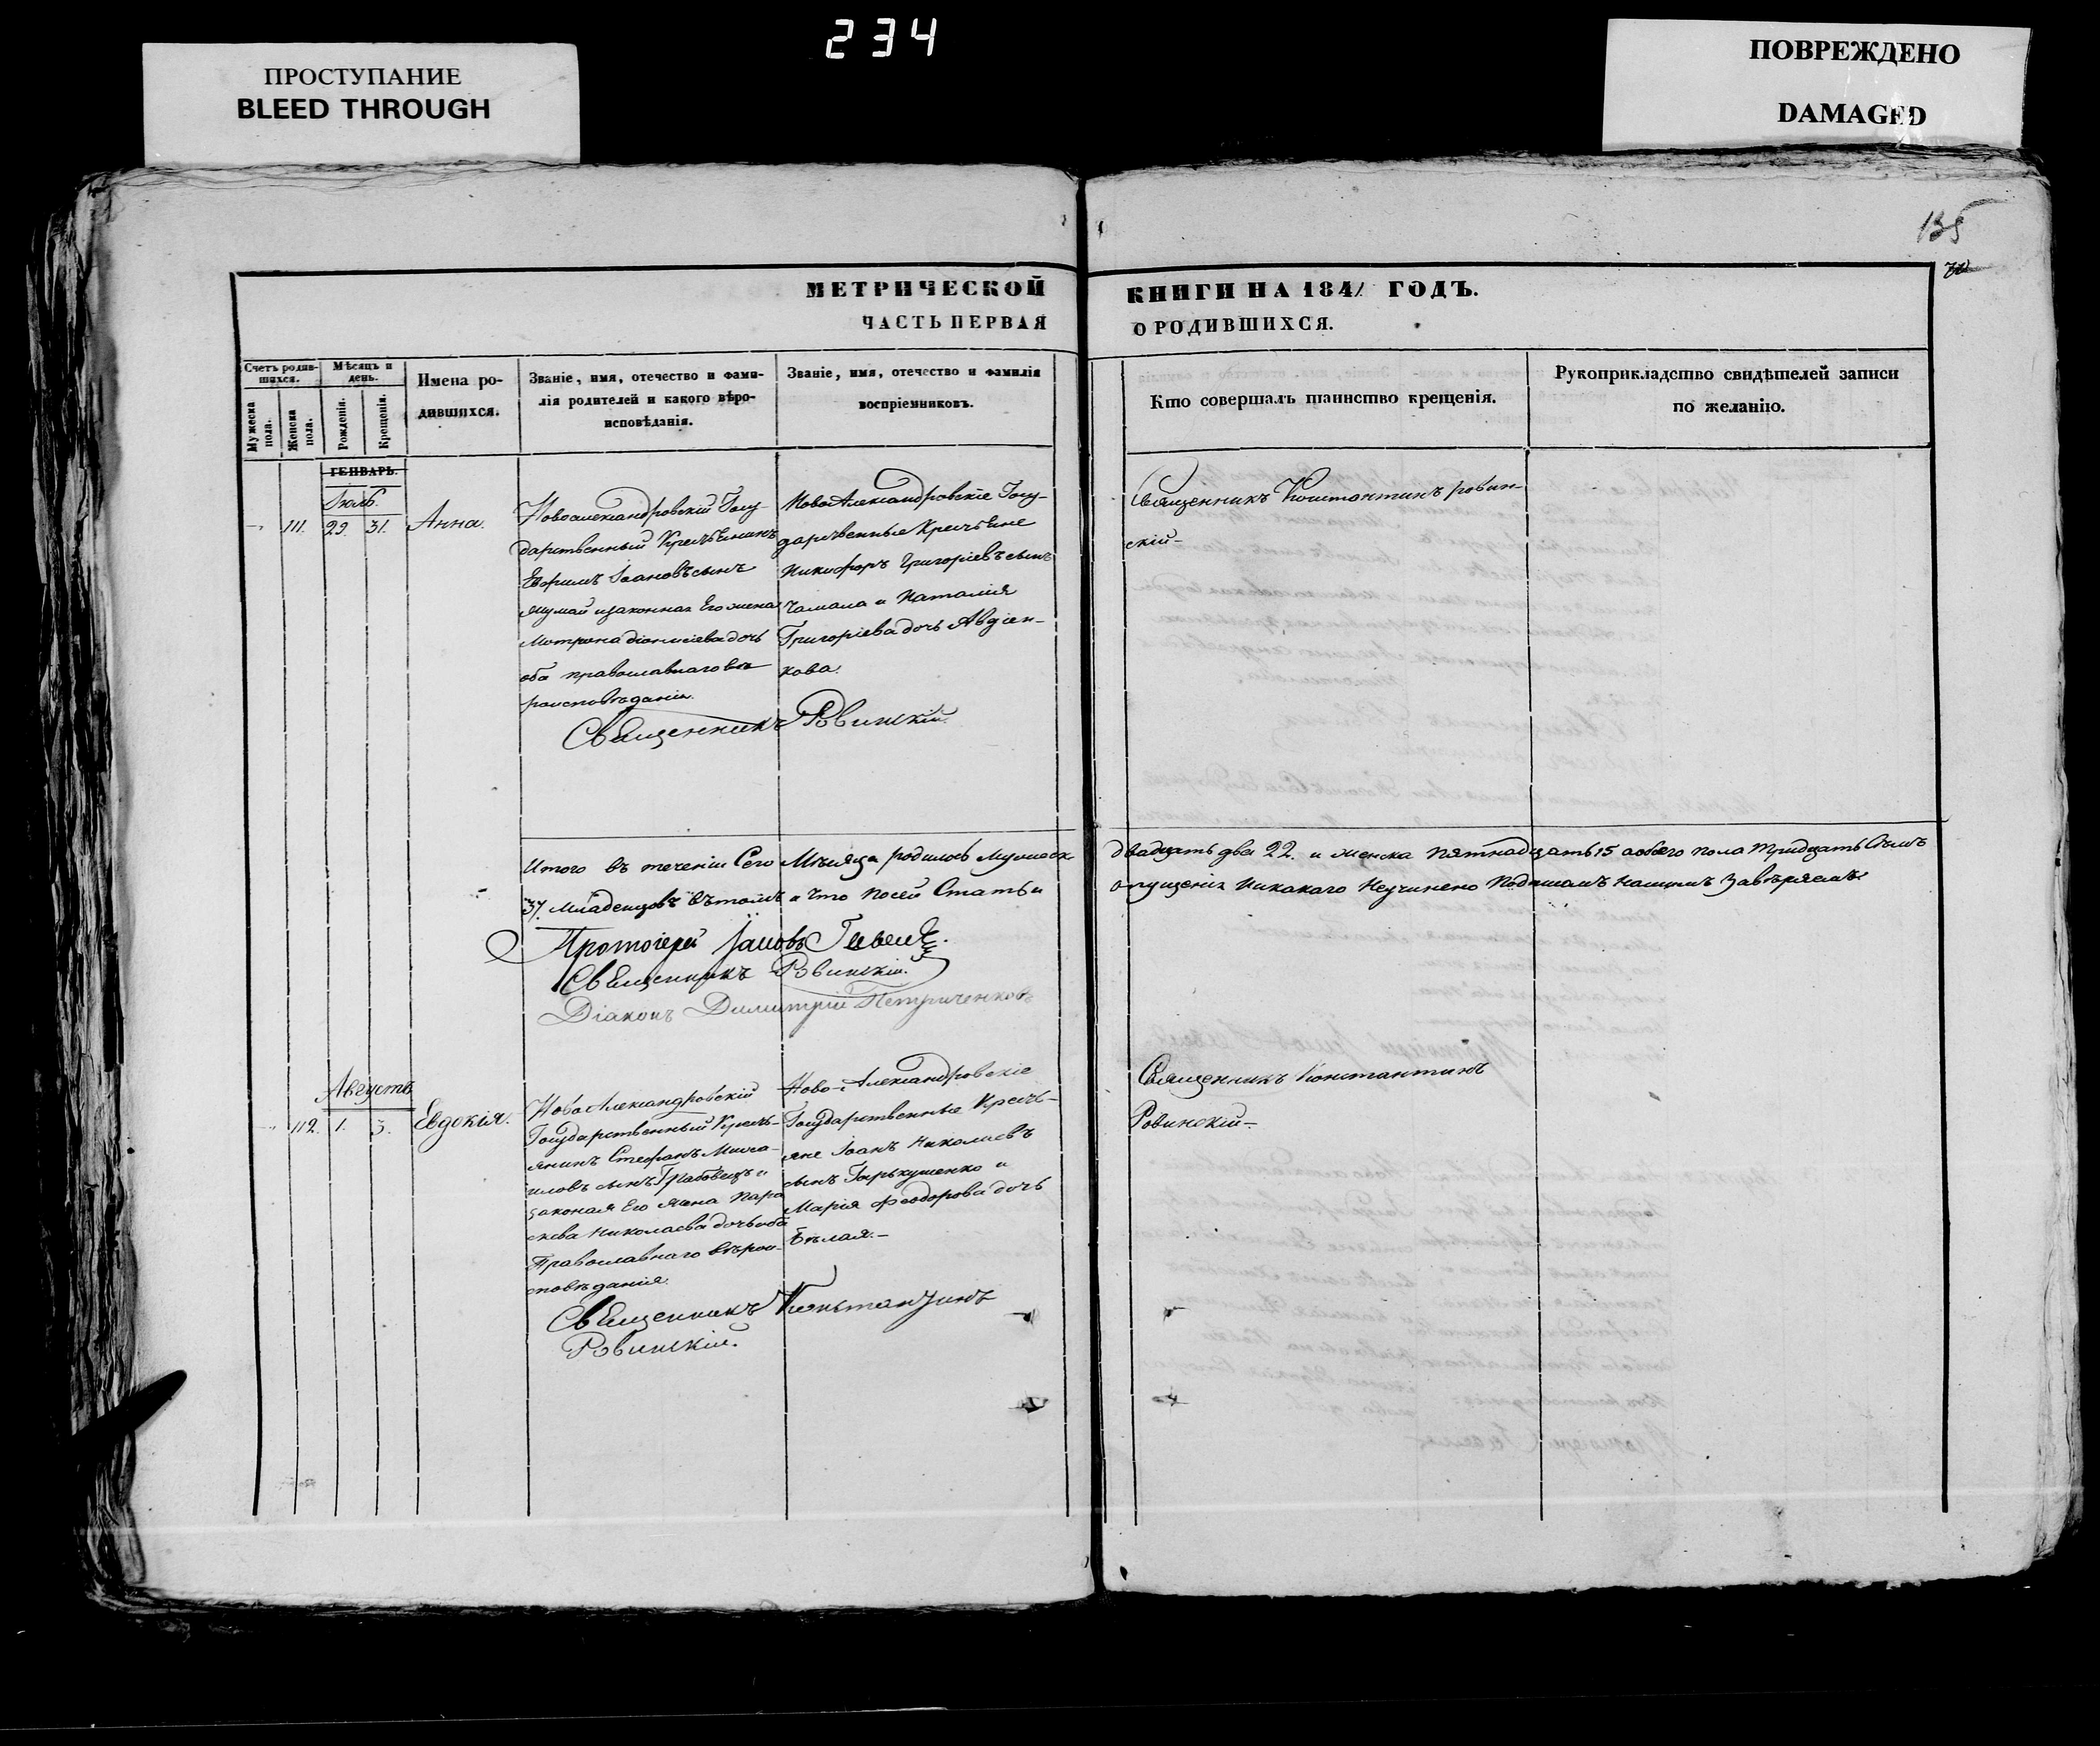 234
ПРОСТУПАНИЕ
BLEED THROUGH
ПОВРЕЖДЕНО
DAMAGED
135
МЕТРИЧЕСКОЙ
ЧАСТЬ ПЕРВАЯ
КНИГИ НА 1841 ГОДЪ.
О РОДИВШИХСЯ.
Счетъ родив-
шихся.
Мужеска
пола.
Женска
пола.
Мѣсяцъ и
день.
Рожденія.
Крещенія.
Имена ро-
дившихся.
Званіе, имя, отечество и фами-
лія родителей и какого вѣро-
исповѣданія.
Званіе, имя, отечество и фамилія
воспріемниковъ.
Кто совершалъ таинство крещенія.
Рукоприкладство свидѣтелей записи
по желанію.
ГЕНВАРЬ.
Іюль.
111. 29. 31. Анна.
Новоалександровскій Госу-
дарственный Крестьянинъ
Евфимъ Іоановъ сынъ
и законная Его жена
Матрона діонисіева дочь
оба православнаго вѣ
роисповѣданія.
НовоАлександровскіе Госу-
дарственные Крестьяне
Никифоръ Григоріевъ сынъ
Чамала и Наталія
Григоріева дочь Авдіен-
кова.
Священникъ Ровинскій.
Священникъ Константинъ ровин-
скій-
Итого въ теченіи Сего Мѣсяца родилось Мужеск.
двадцать два 22. и женска пятнадцать 15 а обоего пола тридцать Семъ
37. младенцовъ въ томъ и что посей Статьи
опущенія Никакого Неучинено Подписомъ нашимъ Завѣряемъ.
Протоіерей Іаковъ
Священникъ Ровинскій.
Діаконъ Димитрій Петриченковъ
Августъ
112. 1. 3. Евдокія.
НовоАлександровскій
Государственный Кресть-
янинъ Стефанъ Миха-
иловъ сынъ Грабовецъ и
законая Его жена Пара
скева Николаева дочь оба
Православнаго вѣрои-
сповѣданія.
Ново-Александровскіе
Государственные Кресть-
яне Іоанъ Николаевъ
сынъ Горькушенко и
Марія Феодорова дочь
Бѣлая.-
Священникъ Константинъ
Ровинскій.
Священникъ Константинъ
Ровинскій-